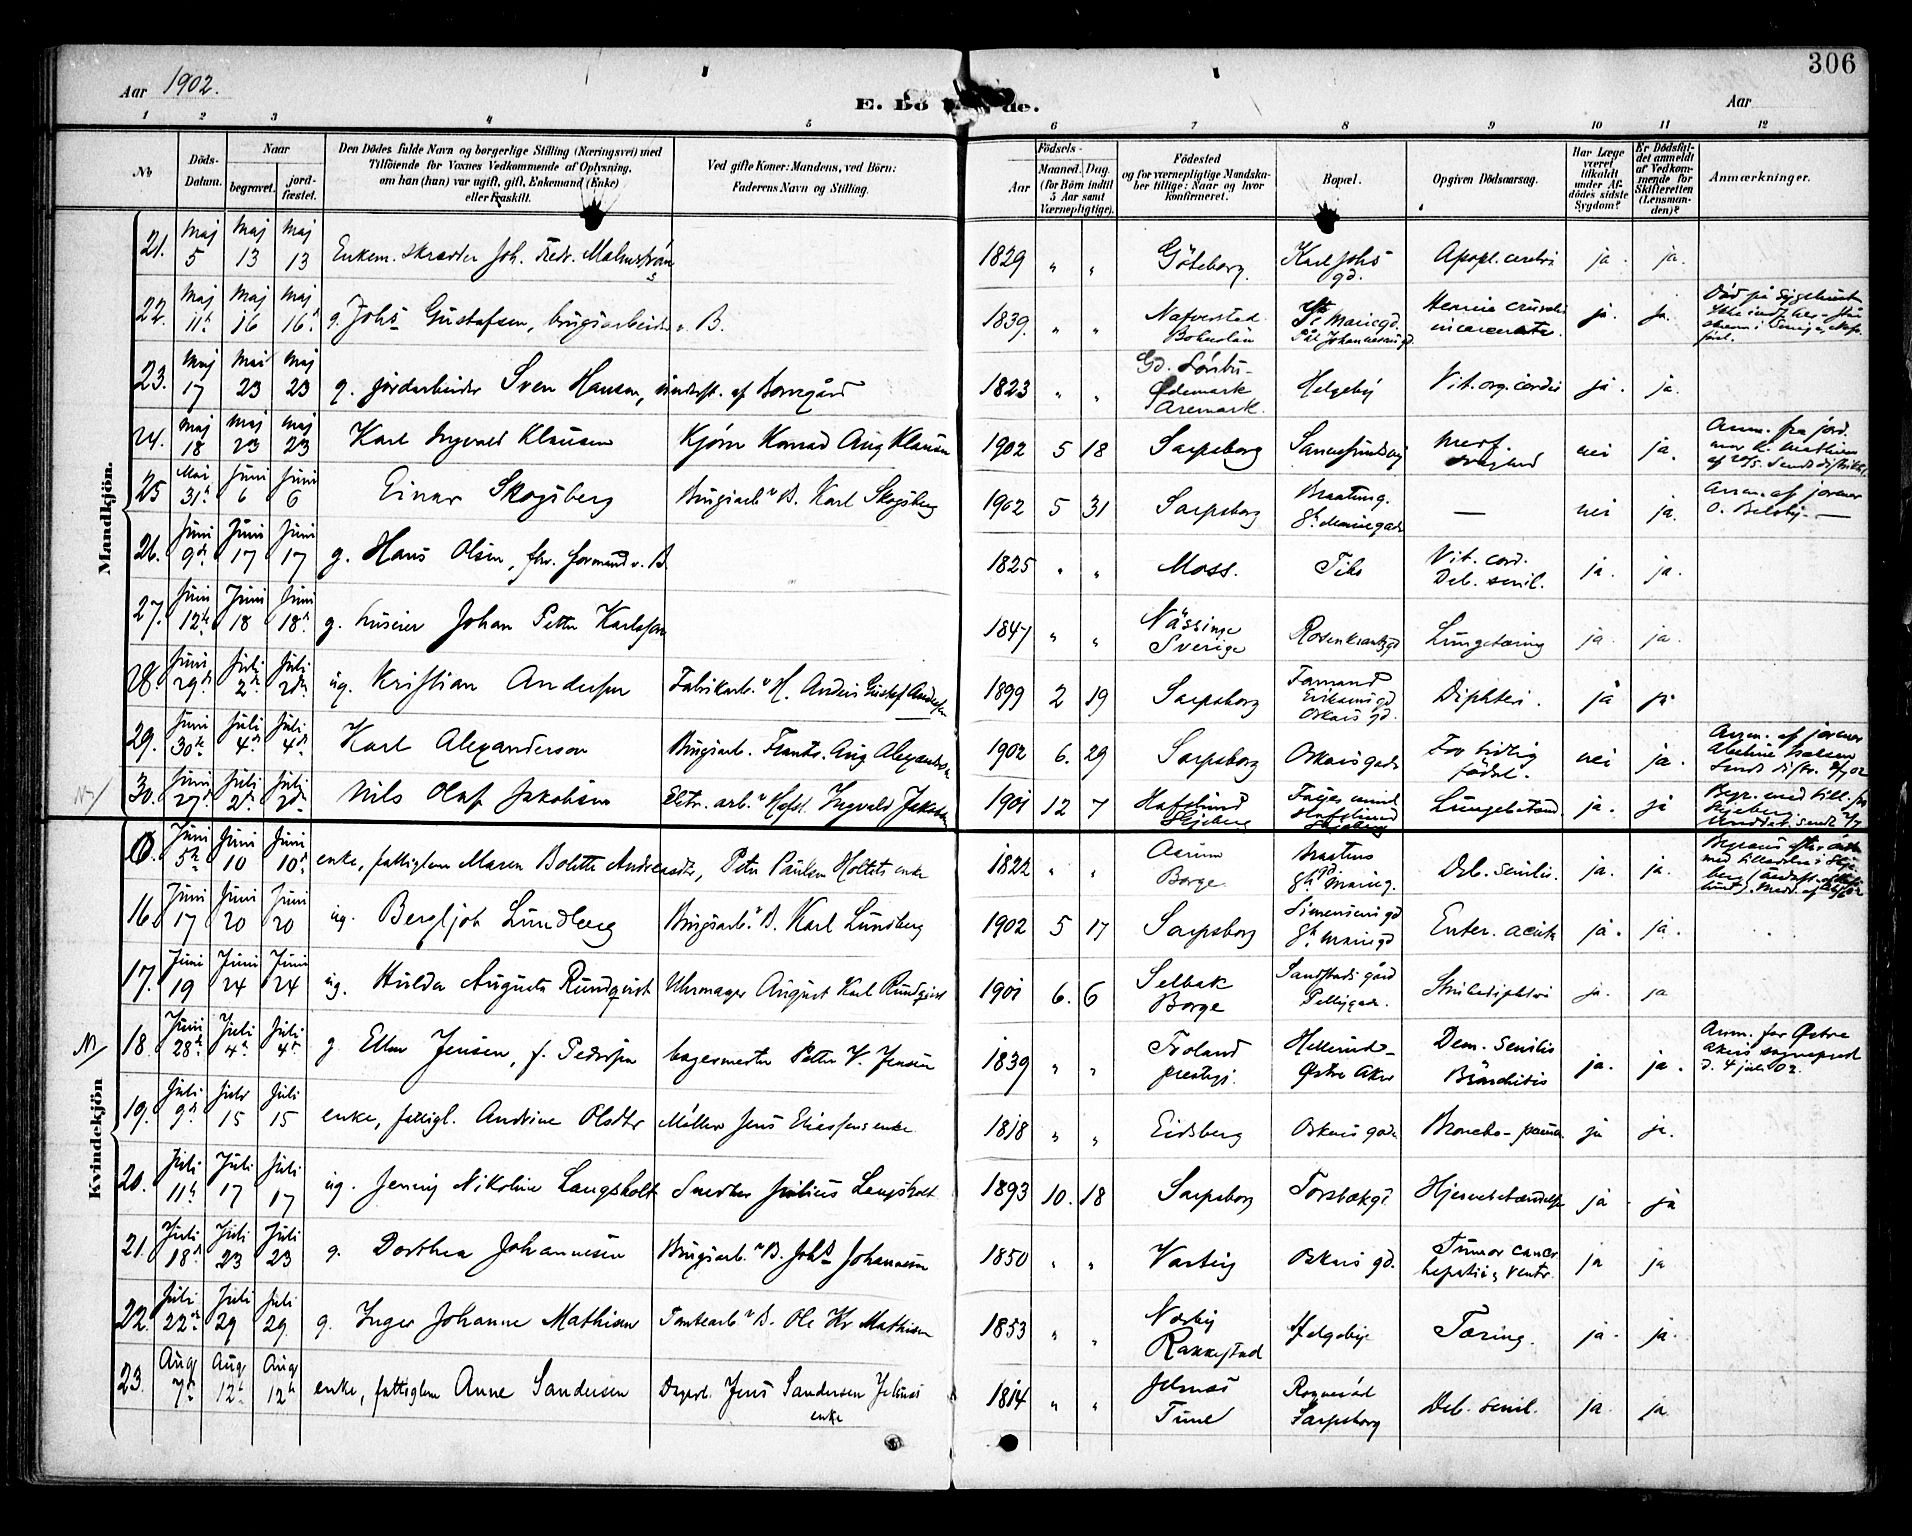 306
Aar 1902.
E. Dø de.
Aar
1 2 3 4 5 6 7 8 9 10 11 12
No
Døds-Datum.
Naar
begravet.
jordfæstet.
Den Dødes fulde Navn og borgerlige Stilling (Næringsvei) med
Tilföiende for Voxnes Vedkommende af Oplysning,
om han (hun) var ugift, gift, Enkemand (Enke)
eller Fraskilt.
Ved gifte Koner: Mandens, ved Börn:
Faderens Navn og Stilling.
Födsels-
Aar
Maaned. Dag.
(for Börn indtil
5 Aar samt
Værnepligtige).
Födested
og for værnepligtige Mandska-
ber tillige: Naar og hvor
konfirmeret.
Bopæl.
Opgiven Dödsaarsag.
Har Læge
været
tilkaldt
under Af-
dödes sidste
Sygdom?
Er Dödsfal-
det anmeldt
af Vedkom-
mende for
Skifteretten
(Lensman-
den)?
Anmærkninger.
Mandkjön.
21. Maj 5 Maj 13 Maj 13 Enkem. skrædder Joh. Fredr. Malmström 1829 " " Göteborg. Karl Johs gd. Apopl. cerebri ja. ja.
22. Maj 11 Maj 16 Maj 16 g. Johs Gustafsen, brugsarbeider v. B. 1839. " " Nafverstad Bohuslän Johannesens gd. Hernia cruralis incarcerata. ja. ja. Död på Sygehuset
23. Maj 17 Mai 23 Maj 23 g. jordarbeider Sven Hansen, understøt. af Borregård 1823 " " Gd. Sörbi- Ødemark Aremark. Helgeby Vit. org. cordis ja. ja.
24. Maj 18 Maj 23 Maj 23 Karl Ingvald Klausen Kjørn Konrad Aug Klausen 1902 5 18 Sarpsborg Sannesundsvej medf. svaghed nei ja. Anm. fra jord. mor K. Mathisen af 20/5. Sendt distriktsl.
25 Mai 31 Juni 6 Juni 6 Einar Skogsberg Brugsarb v B. Karl Skogsberg 1902 5 31 Sarpsborg Braatung. St. Mariegade — nei ja. Anm. af jormor O. Belsby. —
26. Juni 9 Juni 17 Juni 17 g. Hans Olsen, fhv. formand v. B. 1825 " " Moss. Tits Vit. cord. Deb. senil. ja. ja.
27. Juni 12 Juni 18 Juni 18 g. huseier Johan Petter Karlsson 1847 " " Nässinge Sverige Rosenkrantzgd Lungetæring ja. ja.
28. Juni 29 Juli 2 Juli 2 ug. Kristian Andersen Fabrikarb. v H. Anders Gustaf Andersen 1899 2 19 Sarpsborg Eriksens gd Oskars gd. Diphteri. ja ja
29. Juni 30 Juli 4 Juli 4 Karl Alexanderson Brugsarb. Frants. Aug Alexanderson 1902 6. 29 Sarpsborg Oskars gade For tidlig fødsel. nei ja. Anm. af jormor
Nr/ 30. Juni 27 Juli 2 Juli 2 Nils Olaf Jakobsen Eletr. arb. v Hafsl. Ingvald Jakobsen 1901 12 7 Hafslund Skjeberg Hafslund Skjeberg Lungebetænd. ja. ja
Kvindekjön
Juni 5 Juni 10 Juni 10 enke, fattiglem Maren Bolette Andreasdtr, Peter Paulsen Holtets enke 1822 " " Borge Braatens St. Marieg. Deb. senilis. ja. ja.
16. Juni 17 Juni 20 Juni 20 ug. Bergljot Lundberg Brugsarb. v B. Karl Lundberg 1902 5 17 Sarpsborg Simensens gd St. Marie gd Enter. acuta ja. ja.
17. Juni 19 Juni 24 Juni 24 ug. Hulda Augusta Rundqvist Uhrmager August Karl Rundqvist 1901 6. 6 Selbak Borge Sandstads gård Pellygade. Strubediphteri ja. ja
Nr/ 18. Juni 28 Juli 4 Juli 4 g Ellen Jensen, f. Pedersen bagermester Petter V. Jensen 1839 " " Froland prestegj. Hellerud- Østre Aker Dem. senilis Bronchitis ja. ja. Anm. for Østre Akers sogneprest d. 4 juli 02.
19. Juli 9 Juli 15 Juli 15 enke, fattigl. Andrine Olsdtr Møller Jens Eliassens enke 1818 " " Eidsberg Oskars gade Broncho-pneum ja ja.
20. Juli 11 Juli 17 Juli 17 ug. Jenny Nikoline Langsholt Snedker Julius Langsholt 1893 10. 18 Sarpsborg Torsbækgd Hjernebetændelse ja ja
21. Juli 18 Juli 23 Juli 23 g. Dorthea Johannesen Brugsarb. v B. Johs Johannesen 1850 " " Varteig Oskars gd. Tumor cancr hepatis & ventr. ja ja
22. Juli 22 Juli 29 Juli 29 g. Inger Johanne Mathisen Tomtearb v B. Ole Kr Mathisen 1853 " " Nærby Rakkestad Helgebye Tæring. ja. ja.
23. Aug 7 Aug 12 Aug 12 enke, fattiglem Anne Sandersen Dagarb. Jens Sandersen Jelnæs enke 1814 " " Jelnæs Tune Sarpsborg Deb. senil. ja. ja.